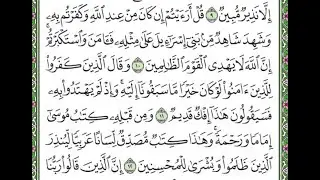 إِلَّا نَذِيرٌ مُّبِينٌ ٩ قُلْ أَرَءَيْتُمْ إِن كَانَ مِنْ عِندِ ٱللَّهِ وَكَفَرْتُم بِهِۦ
وَشَهِدَ شَاهِدٌ مِّنۢ بَنِىٓ إِسْرَٰٓءِيلَ عَلَىٰ مِثْلِهِۦ فَـَٔامَنَ وَٱسْتَكْبَرْتُمْ
إِنَّ ٱللَّهَ لَا يَهْدِى ٱلْقَوْمَ ٱلظَّٰلِمِينَ ١٠ وَقَالَ ٱلَّذِينَ كَفَرُوا۟
لِلَّذِينَ ءَامَنُوا۟ لَوْ كَانَ خَيْرًا مَّا سَبَقُونَآ إِلَيْهِ وَإِذْ لَمْ يَهْتَدُوا۟ بِهِۦ
فَسَيَقُولُونَ هَٰذَآ إِفْكٌ قَدِيمٌ ١١ وَمِن قَبْلِهِۦ كِتَٰبُ مُوسَىٰٓ
إِمَامًا وَرَحْمَةً وَهَٰذَا كِتَٰبٌ مُّصَدِّقٌ لِّسَانًا عَرَبِيًّا لِّيُنذِرَ
ٱلَّذِينَ ظَلَمُوا۟ وَبُشْرَىٰ لِلْمُحْسِنِينَ ١٢ إِنَّ ٱلَّذِينَ قَالُوا۟ رَبُّنَا